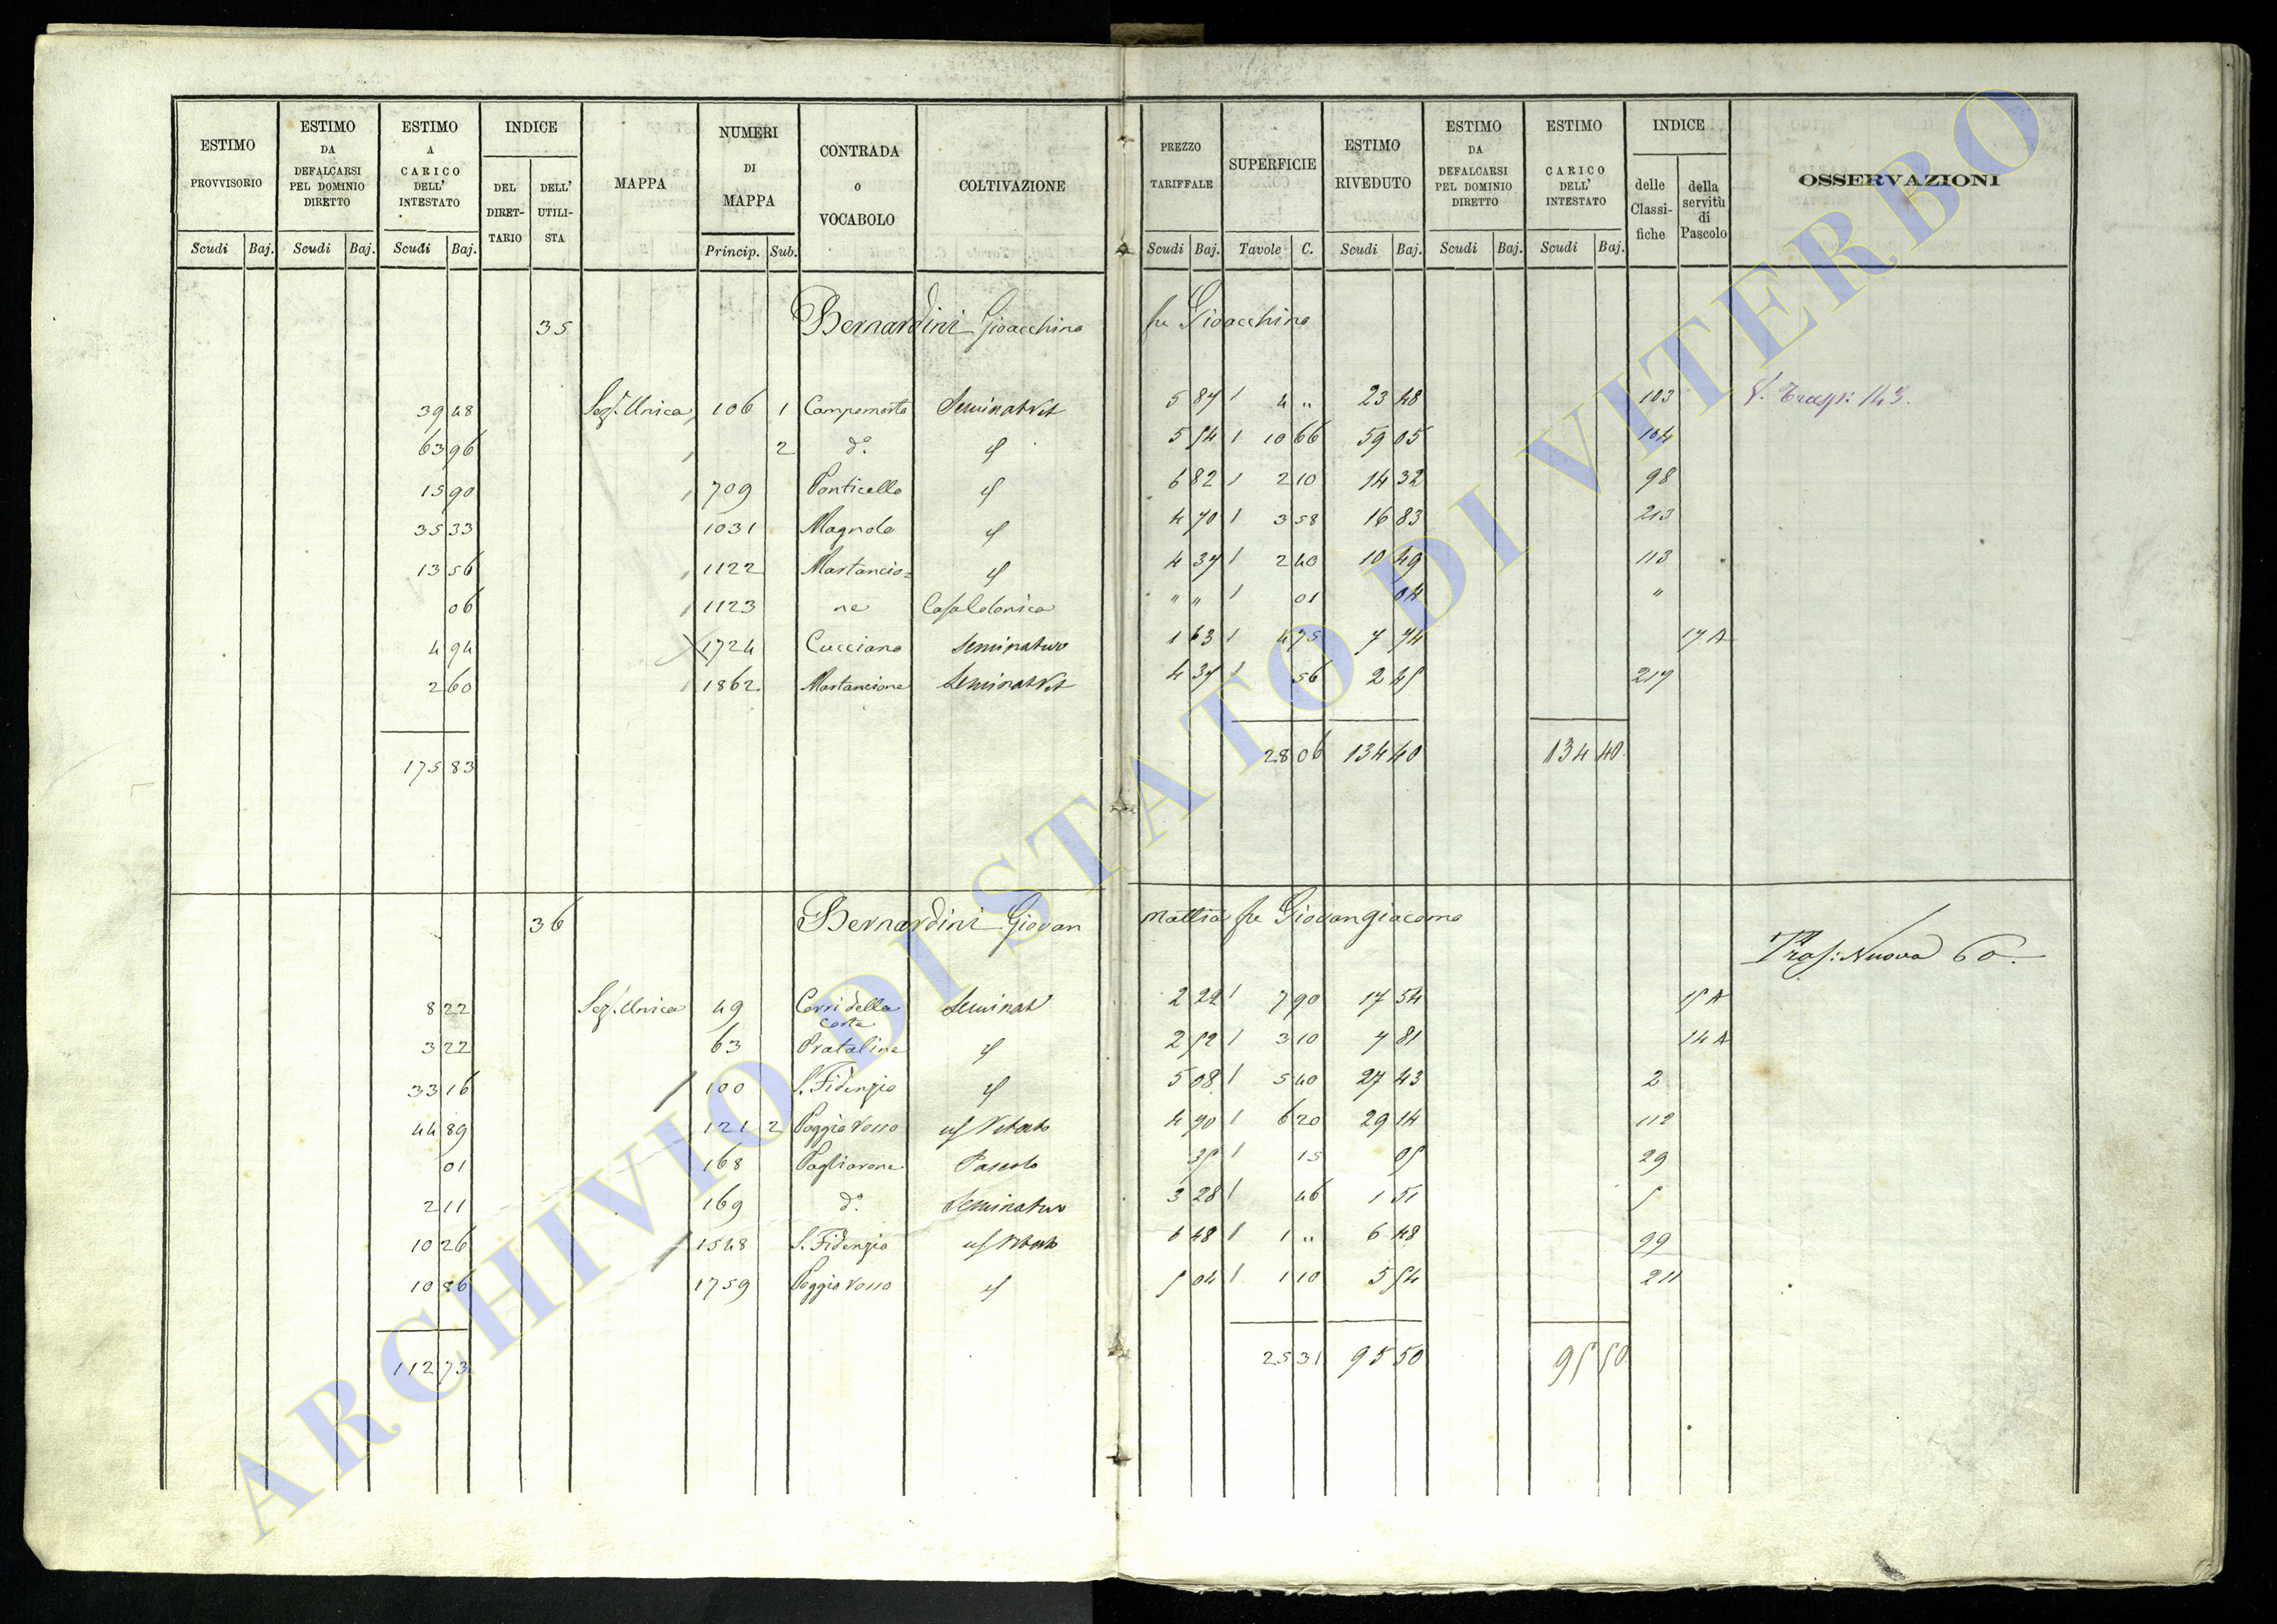 ESTIMO PROVVISORIO
Scudi Baj.
ESTIMO DA DEFALCARSI PEL DOMINIO DIRETTO
Scudi Baj.
ESTIMO A CARICO DELL' INTESTATO
Scudi Baj.
INDICE
DEL DIRET-TARIO
DELL' UTILI-STA
MAPPA
NUMERI DI MAPPA
Princip. Sub.
CONTRADA o VOCABOLO
COLTIVAZIONE
PREZZO TARIFFALE
Scudi Baj.
SUPERFICIE
Tavole C.
ESTIMO RIVEDUTO
Scudi Baj.
ESTIMO DA DEFALCARSI PEL DOMINIO DIRETTO
Scudi Baj.
ESTIMO CARICO DELL' INTESTATO
Scudi Baj.
INDICE
delle Classi-fiche
della servitù di Pascolo
OSSERVAZIONI
35 Bernardini Gioacchino fu Gioacchino
39 48 Sez. Unica 106 1 Campomorto Seminat Vit 5 87 4 " 23 48 103
63 96 2 d.° 5 54 10 66 59 05 104
15 90 709 Ponticello 6 82 2 10 14 32 98
35 33 1031 Magnolo 4 70 3 58 16 83 213
13 56 1122 Mastancio= 4 37 2 40 10 49 113
06 1123 ne Casa Colonica " " 01 04 "
4 94 1724 Cucciano Seminativo 1 63 4 75 7 74 17 A
2 60 1862 Mastancione Seminat Vit 4 37 56 2 45 217
175 83 28 06 134 40 134 40
36 Bernardini Giovan Mattia fu Giovangiacomo
Tras: Nuova 60
8 22 Sez. Unica 49 Cerri della Costa Seminat 2 22 7 90 17 54 15 A
3 22 63 Prataline 2 52 3 10 7 81 14 A
33 16 100 S. Fidenzio 5 08 5 40 27 43 2
44 89 121 2 Poggio Rosso Vitato 4 70 6 20 29 14 112
01 168 Pagliarone Pascolo 35 15 05 29
2 11 169 d.° Seminativo 3 28 46 1 51 5
10 26 1548 S. Fidenzio Vitato 6 48 1 " 6 48 99
10 86 1759 Poggio Rosso 5 04 1 10 5 54 211
112 73 25 31 95 50 95 50
ARCHIVIO DI STATO DI VITERBO